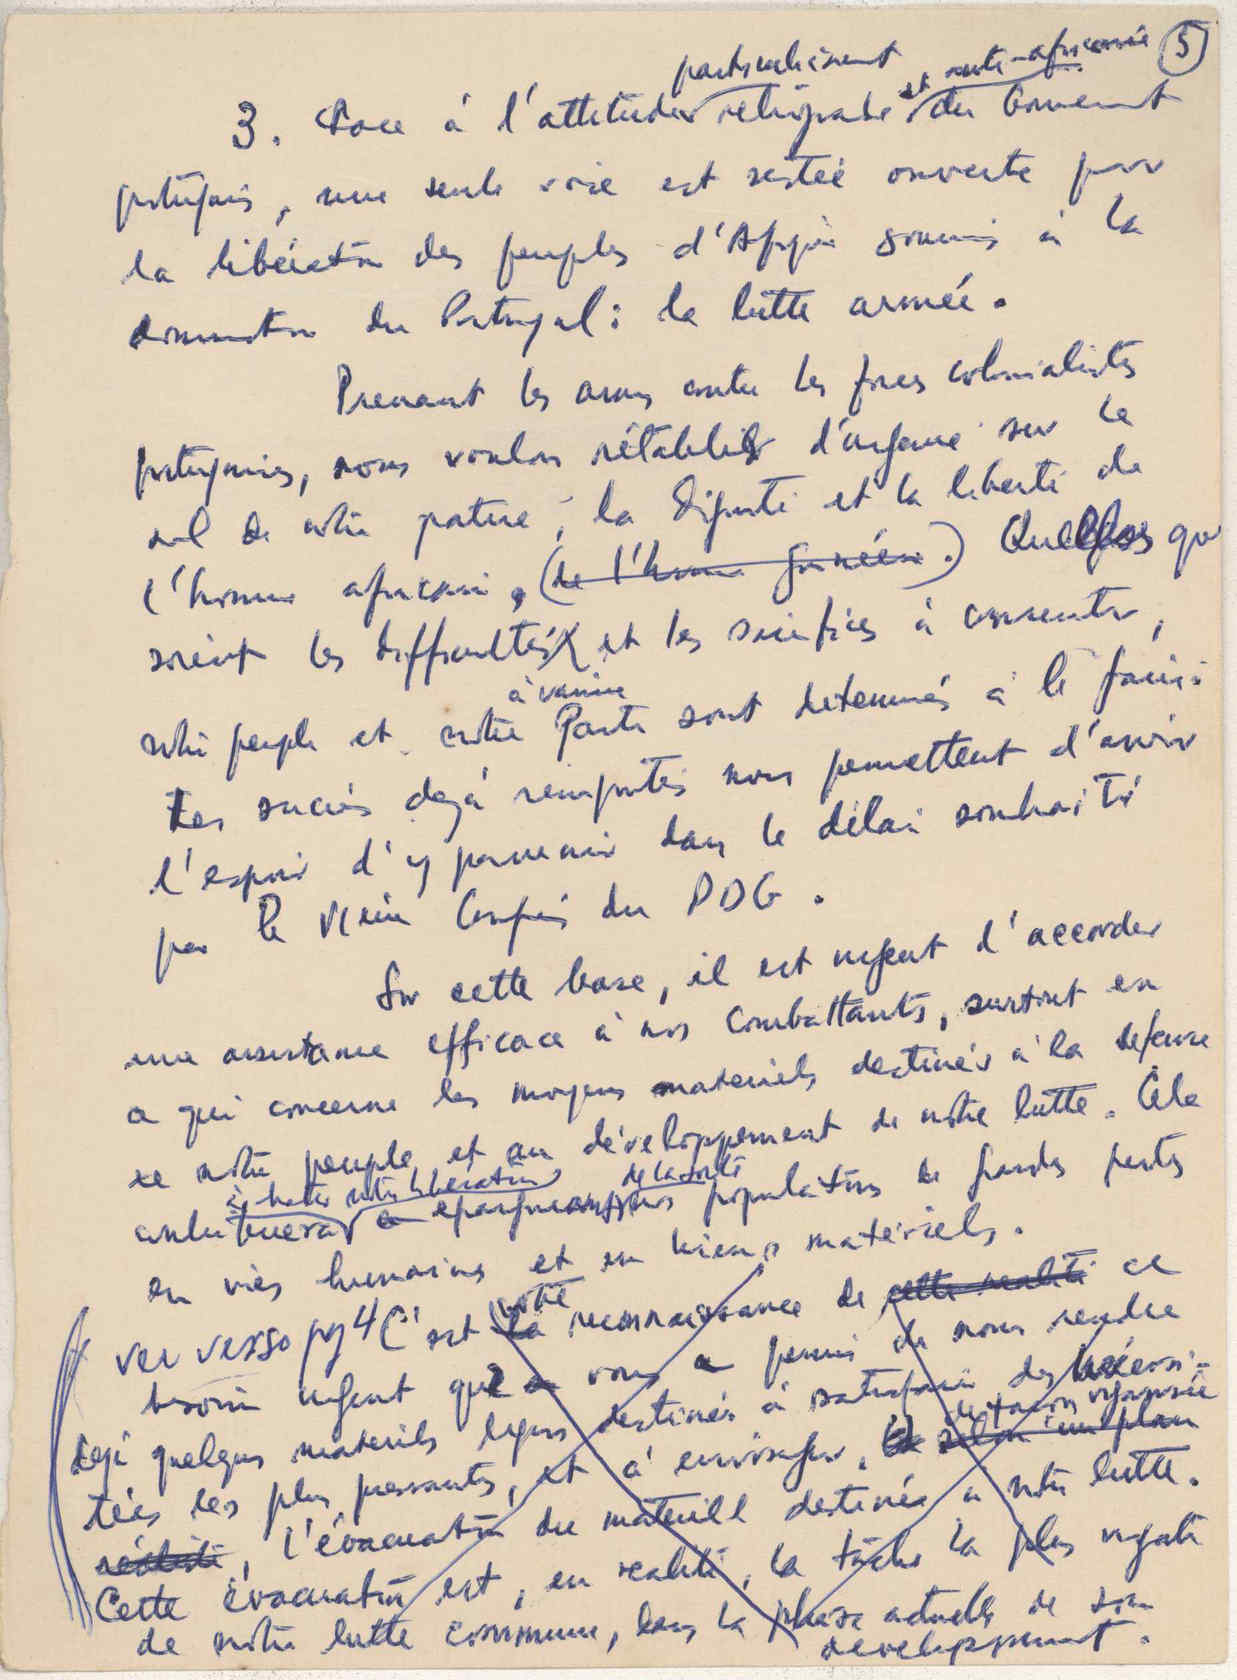 particulièrement et anti-africaine 5
3. Face à l'attitude rétrograde du Gouvernement
portugais, une seule voie est restée ouverte pour
la libération des peuples d'Afrique soumis à la
domination du Portugal : la lutte armée.
Prenant les armes contre les forces colonialistes
portugaises, nous voulons rétablir d'urgence sur le
sol de notre patrie, la dignité et la liberté de
l'homme africain, (de l'homme guinéen.) Quelles que
soient les difficultés et les sacrifices à consentir,
à vaincre
notre peuple et notre Parti sont déterminés à le faire.
Les succès dejà remportés nous permettent d'avoir
l'espoir d'y parvenir dans le délai souhaité
par le VIème Congrès du PDG.
Sur cette base, il est urgent d'accorder
une assistance efficace à nos combattants, surtout en
ce qui concerne les moyens materiels destinés à la defense
de notre peuple et au développement de notre lutte. Cela
à hater notre libération de la sorte
contribuera épargner nos populations de grandes pertes
en vies humaines et en biens matériels.
ver verso pg 4 C'est la votre reconnaissance de cette realité ce
besoin urgent que vous a permis de nous rendre
dejà quelques materiels legers destinés à satisfaire des nécessi-
de façon organisée
tées les plus pressantes, et à envisager, selon un plan
, l'évacuation du materiell destinée à notre lutte.
Cette évacuation est, en realité, la tâche la plus urgente
de notre lutte commune, dans la phase actuelle de son
developpement.